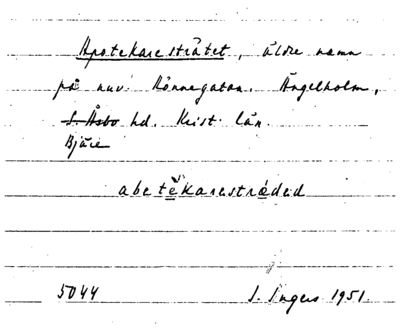 Apotekaresträtet, äldre namn
på nuv. Rönnegatan. Ängelholm,
S. Åsbo hd. Krist. län.
Bjäre
abetékarestrǝded
5044 I. Ingers 1951.